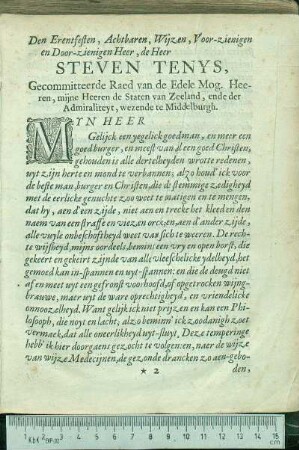 Den Erentfesten, Achtbaren, Wijzen, Voor-zienigen
en Door-zienigen Heer, de Heer
STEVEN TENYS,
Gecommitteerde Raed van de Edele Mog. Hee-
ren, mijne Heeren de Staten van Zeeland, ende der
Admiraliteyt, wezende te Middelburgh.
MYN HEER
Gelijck een yegelick goed man, en meer een
goed burger, en meest van al een goed Christen,
gehouden is alle dertelheyden wt ote redenen,
uyt zijn herte en mond te verbannen; alzo houd' ick voor
de beste man, burger en Christen, die de stemmige zedigheyd
met de eerlicke genuchte zoo weet te matigen en te mengen,
dat hy, aen d'een zijde, niet aen en trecke het kleed en den
naem van een straffe en viezaen oro; en, aen d' ander zijde,
alle vuyle onbeschoftheyd weet van sich te weeren. De rech-
te wijsheyd, mijns oordeels, bemint een vry en open borst, die
gekeert en gekeirt zijnde van alle vleeschelicke ydelheyd, het
gemoed kan in-spannen en uyt-spannen: en die de deugd niet
af en meet uyt een gefronst voorhoofd, of opgetrocken wijng-
brauwe, maer uyt de ware oprechtigheyd, en vriendelicke
onnoozelheyd. Want gelijk ick met prijzen en kan een Phi-
losooph, die noyt en lacht, alzo bemin' ick zoodanigh zoet
vermaek, dat alle oneerlikheyd uyt-sluyt. Deze temperinge
hebb' ik hier doorgaens gezocht te volgen: en, naer de wijze
van wijze Medecijnen, de gezonde drancken zo aen-gebo-
* 2
den,